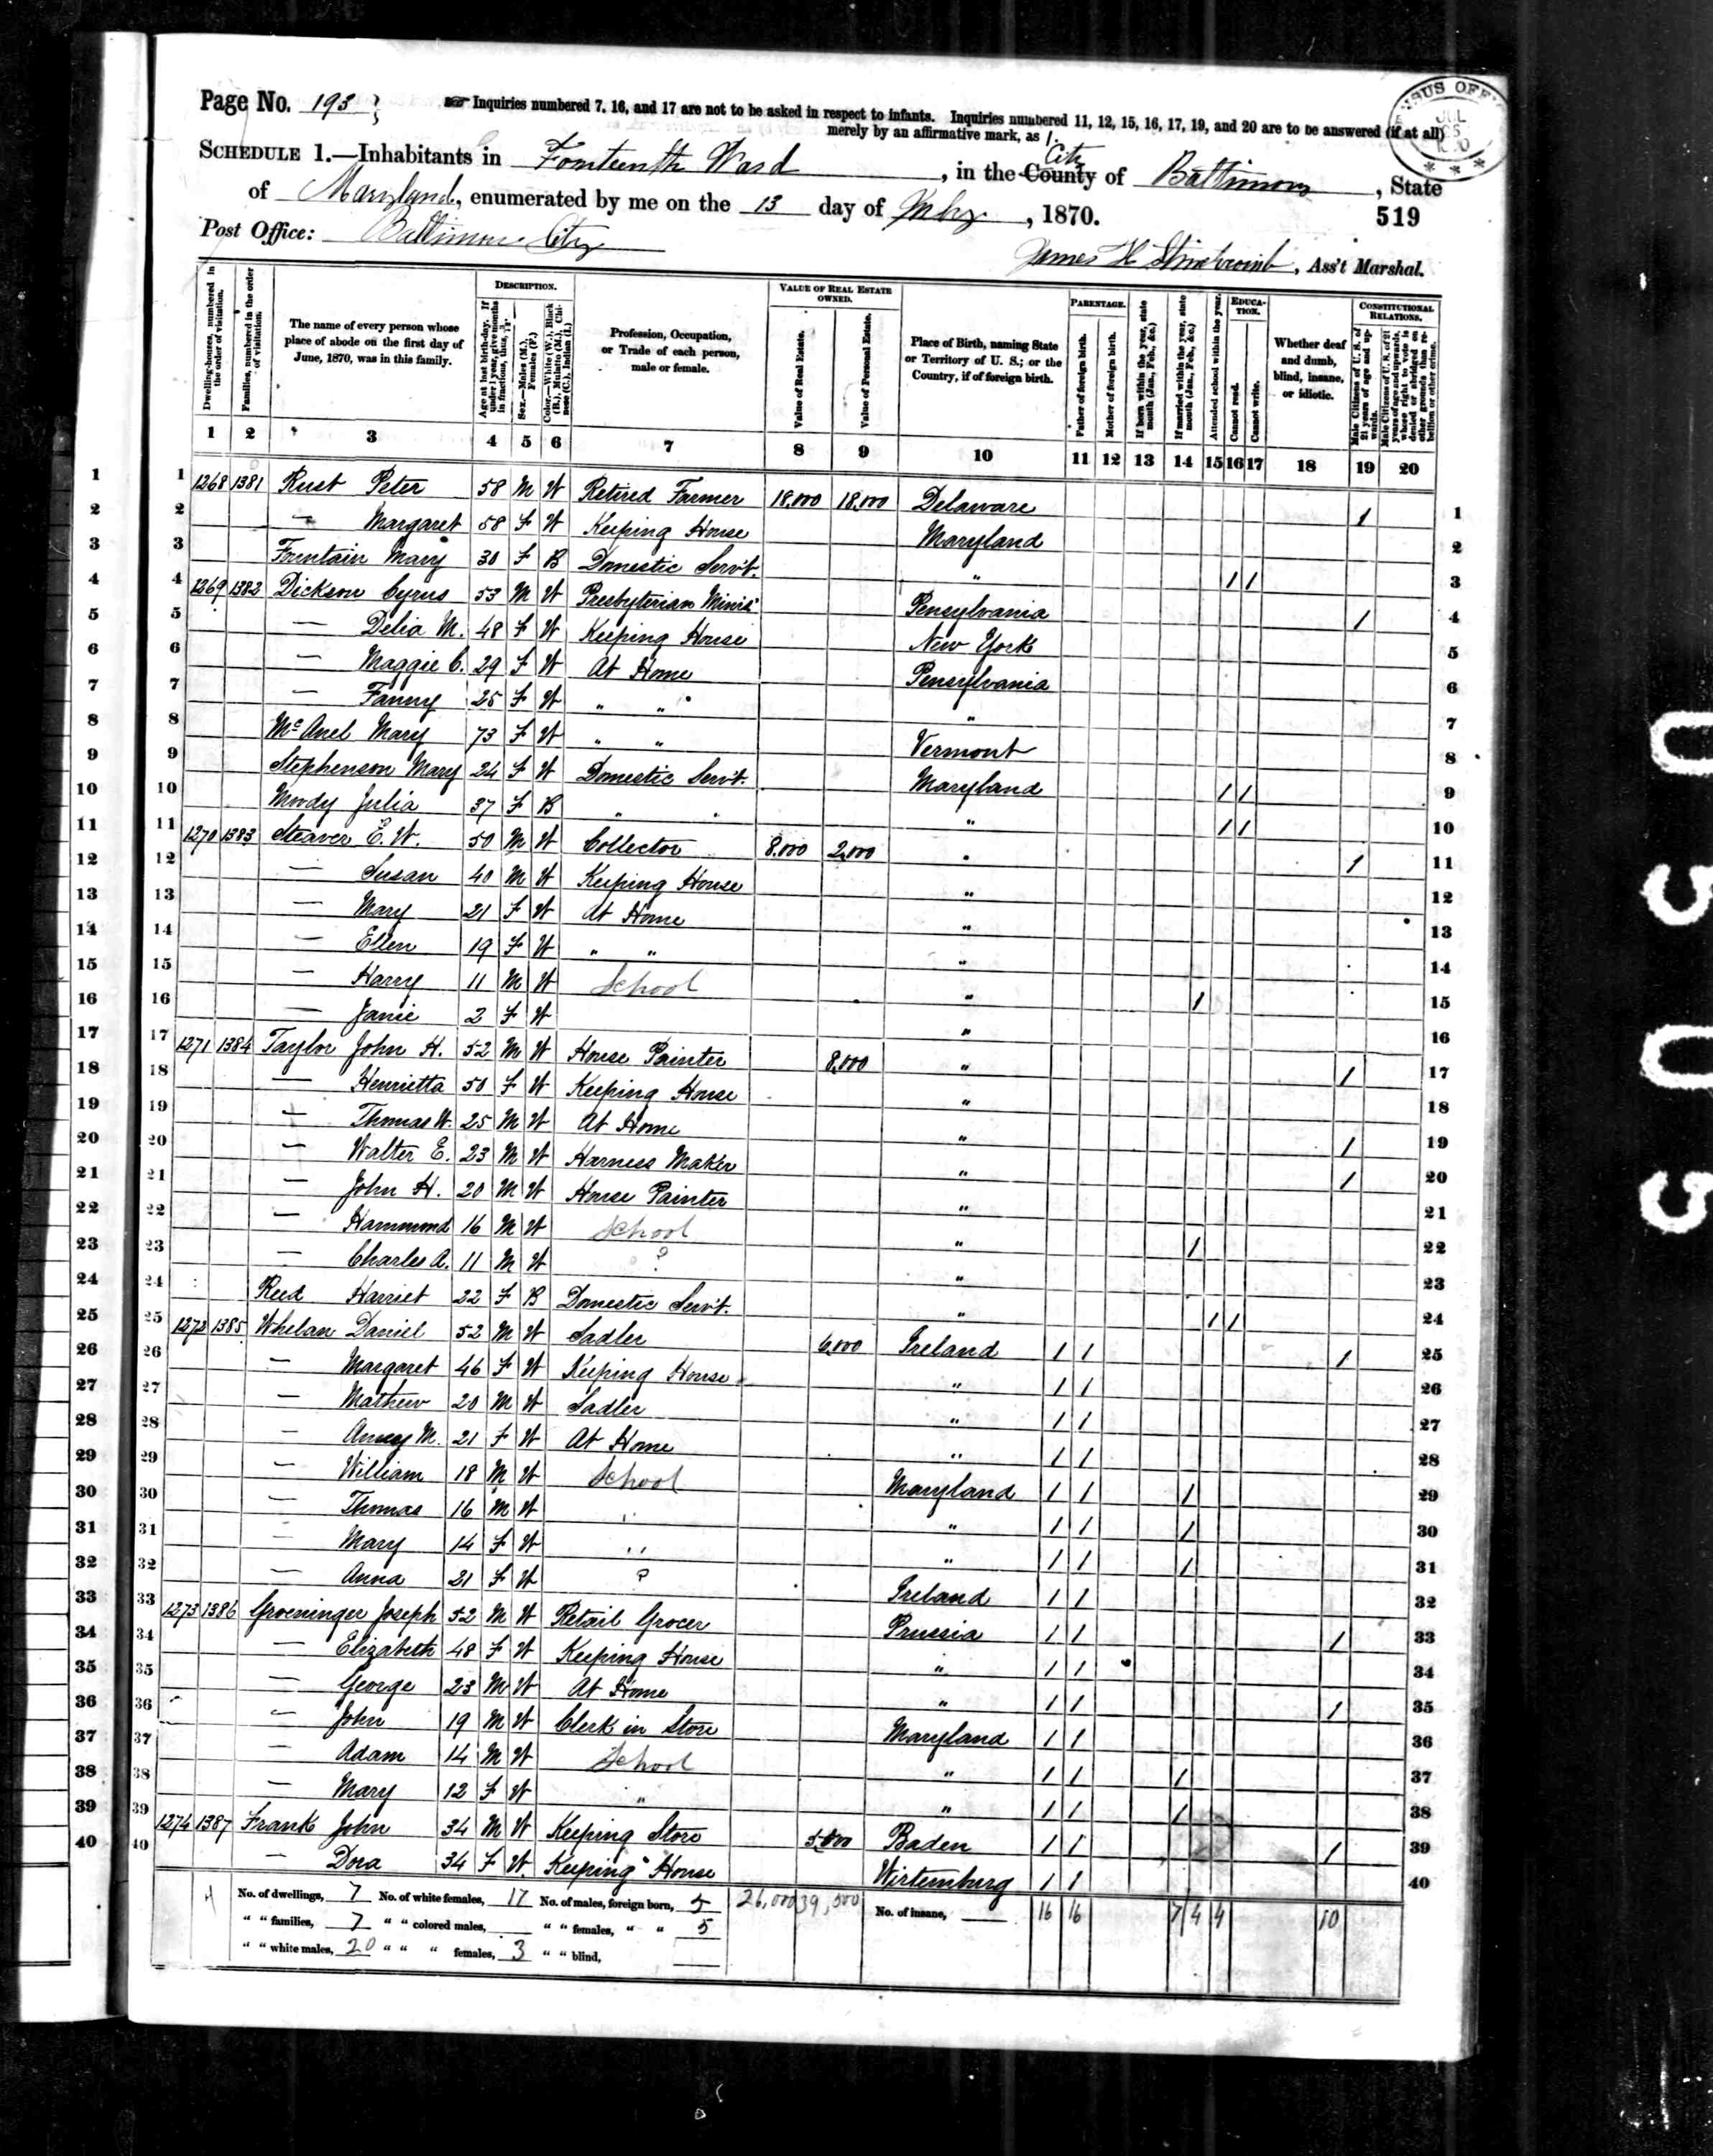 Page No. 193
Inquiries numbered 7, 16, and 17 are not to be asked in respect to infants. Inquiries numbered 11, 12, 15, 16, 17, 19, and 20 are to be answered (if at all)
merely by an affirmative mark, as /.
SCHEDULE 1.—Inhabitants in Fourteenth Ward, in the County City of Baltimore, State
of Maryland, enumerated by me on the 13 day of July, 1870.
519
Post Office: Baltimore City
James H, Ass't Marshal.
Dwelling-houses, numbered in the order of visitation.
Families, numbered in the order of visitation.
The name of every person whose place of abode on the first day of June, 1870, was in this family.
DESCRIPTION.
Age at last birth-day. If under 1 year, give months in fractions, thus, 3/12.
Sex.—Males (M.), Females (F.)
Color.—White (W.), Black (B.), Mulatto (M.), Chinese (C.), Indian (I.)
Profession, Occupation, or Trade of each person, male or female.
VALUE OF REAL ESTATE OWNED.
Value of Real Estate.
Value of Personal Estate.
Place of Birth, naming State or Territory of U. S.; or the Country, if of foreign birth.
PARENTAGE.
Father of foreign birth.
Mother of foreign birth.
If born within the year, state month (Jan., Feb., &c.)
If married within the year, state month (Jan., Feb., &c.)
Attended school within the year.
EDUCATION.
Cannot read.
Cannot write.
Whether deaf and dumb, blind, insane, or idiotic.
CONSTITUTIONAL RELATIONS.
Male Citizens of U. S. of 21 years of age and upwards.
Male Citizens of U. S. of 21 years of age and upwards, whose right to vote is denied or abridged on other grounds than rebellion or other crime.
1 2 3 4 5 6 7 8 9 10 11 12 13 14 15 16 17 18 19 20
1 1 1268 1381 Rust Peter 58 M W Retired Farmer 18,000 18,000 Delaware / 1
2 2 — Margaret 58 F W Keeping House Maryland 2
3 3 Fountain Mary 30 F B Domestic Servt. " / / 3
4 4 1269 1382 Dickson Cyrus 53 M W Presbyterian Minis' Pensylvania / 4
5 5 — Delia M. 48 F W Keeping House New York 5
6 6 — Maggie C. 29 F W At Home Pensylvania 6
7 7 — Fanny 25 F W " " " 7
8 8 McAnel Mary 73 F W " " Vermont 8
9 9 Stephenson Mary 24 F W Domestic Servt. Maryland / / 9
10 10 Moody Julia 37 F B " " " / / 10
11 11 1270 1383 Steaver E. W. 50 M W Collector 8.000 2,000 " / 11
12 12 — Susan 40 M W Keeping House " 12
13 13 — Mary 21 F W At Home " 13
14 14 — Ellen 19 F W " " " 14
15 15 — Harry 11 M W School " / 15
16 16 — Janie 2 F W " 16
17 17 1271 1384 Taylor John H. 52 M W House Painter 8,000 " / 17
18 18 — Henrietta 50 F W Keeping House " 18
19 19 — Thomas W. 25 M W At Home " / 19
20 20 — Walter E. 23 M W Harness Maker " / 20
21 21 — John H. 20 M W House Painter " 21
22 22 — Hammond 16 M W School " / 22
23 23 — Charles A. 11 M W ? " 23
24 24 Reed Harriet 22 F B Domestic Servt. " / / 24
25 25 1272 1385 Whelan Daniel 52 M W Sadler 6,000 Ireland / / / 25
26 26 — Margaret 46 F W Keeping House " / / 26
27 27 — Mathew 20 M W Sadler " / / 27
28 28 — M. 21 F W At Home " / / 28
29 29 — William 18 M W School Maryland / / / 29
30 30 — Thomas 16 M W " " / / / 30
31 31 — Mary 14 F W " " / / / 31
32 32 — Anna 21 F W ? Ireland / / 32
33 33 1273 1386 Groeninger Joseph 52 M W Retail Grocer Prussia / / / 33
34 34 — Elizabeth 48 F W Keeping House " / / 34
35 35 — George 23 M W At Home " / / / 35
36 36 — John 19 M W Clerk in Store Maryland / / 36
37 37 — Adam 14 M W School " / / / 37
38 38 — Mary 12 F W " " / / / 38
39 39 1274 1387 Frank John 34 M W Keeping Store 5,500 Baden / / / 39
40 40 — Dora 34 F W Keeping House Wirtemburg / / 40
No. of dwellings, 7 No. of white females, 17 No. of males, foreign born, 5 26,000 39,500 No. of insane, — 16 16 7 4 4 10
" " families, 7 " " colored males, " " females, " " 5
" " white males, 20 " " " females, 3 " " blind,